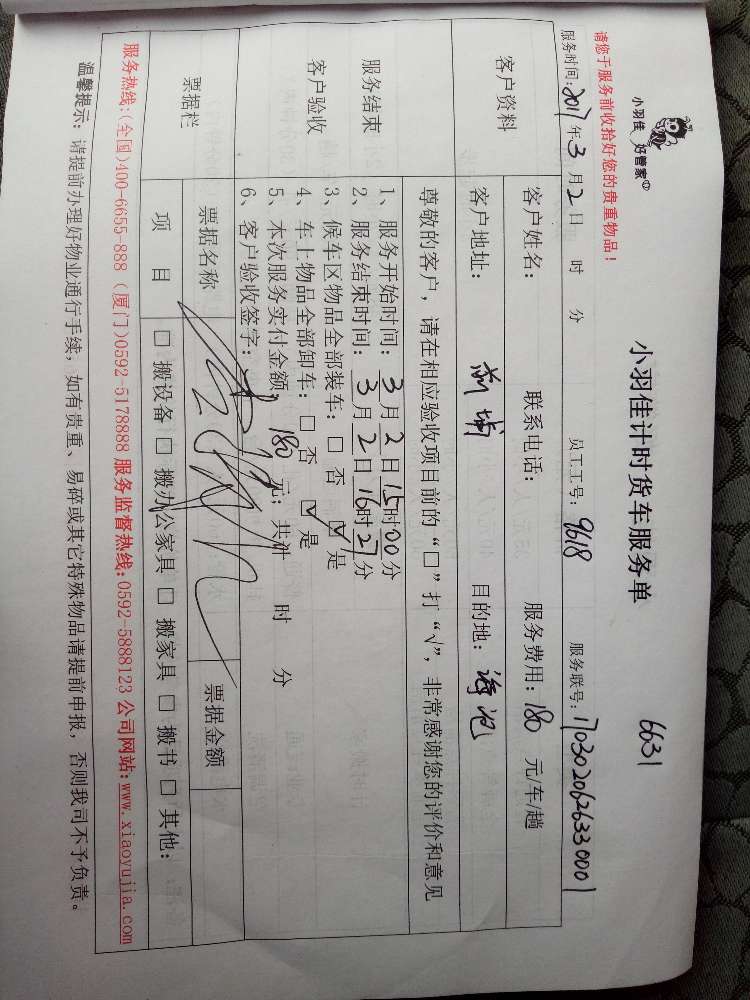 小羽佳 好管家
小羽佳计时货车服务单
6631
请您于服务前收拾好您的贵重物品！
服务时间：2017年3月2日 时 分 员工工号：9618 服务联号：1703020626330001
客户资料
客户姓名： 联系电话： 服务费用：180 元/车/趟
客户地址： 新城 目的地：海沧
尊敬的客户，请在相应验收项目前的“□”打“√”，非常感谢您的评价和意见
服务结束
客户验收
1、服务开始时间：3月2日15时00分
2、服务结束时间：3月2日16时27分
3、候车区物品全部装车：□ 否 ☑ 是
4、车上物品全部卸车：□ 否 ☑ 是
5、本次服务实付金额：180元；共计 时 分
6、客户验收签字：
票据栏
票据名称 票据金额
项 目 □ 搬设备 □ 搬办公家具 □ 搬家具 □ 搬书 □ 其他：
服务热线：(全国)400-6655-888 (厦门)0592-5178888 服务监督热线：0592-5888123 公司网站：www.xiaoyujia.com
温馨提示：请提前办理好物业通行手续，如有贵重、易碎或其它特殊物品请提前申报，否则我司不予负责。